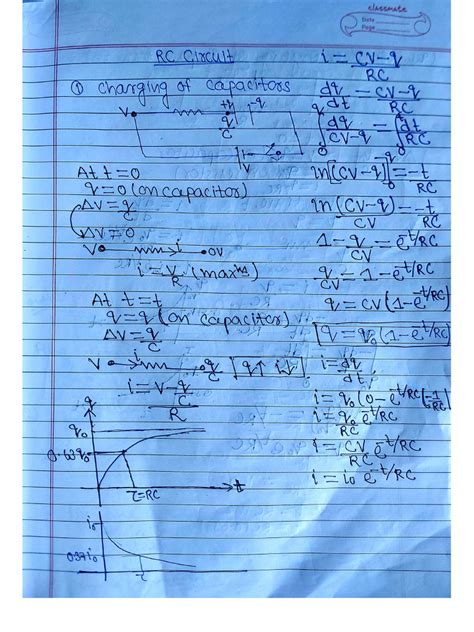 classmate
Date
Page
RC Circuit
① Charging of capacitors
V
+q -q
q/C
V
At t=0
q=0 (on capacitor)
ΔV = q/C
ΔV = 0
V i 0V
i = V/R (max^m)
At t=t
q=q (on capacitor)
ΔV = q/C
V i q/C [q↑ i↓]
i = (V - q/C)/R
q
q₀
0.63q₀
τ=RC
t
i₀
0.37i₀
τ
i = (CV-q)/RC
dq/dt = (CV-q)/RC
∫₀^q dq/(CV-q) = ∫₀^t dt/RC
ln[(CV-q)]₀^q = -t/RC
ln (CV-q)/CV = -t/RC
1 - q/CV = e^-t/RC
q/CV = 1 - e^-t/RC
q = CV(1-e^-t/RC)
[q = q₀(1-e^-t/RC)]
i = dq/dt
i = q₀(0-e^-t/RC(-1/RC)
i = q₀/RC e^-t/RC
i = CV/RC e^-t/RC
i = i₀ e^-t/RC